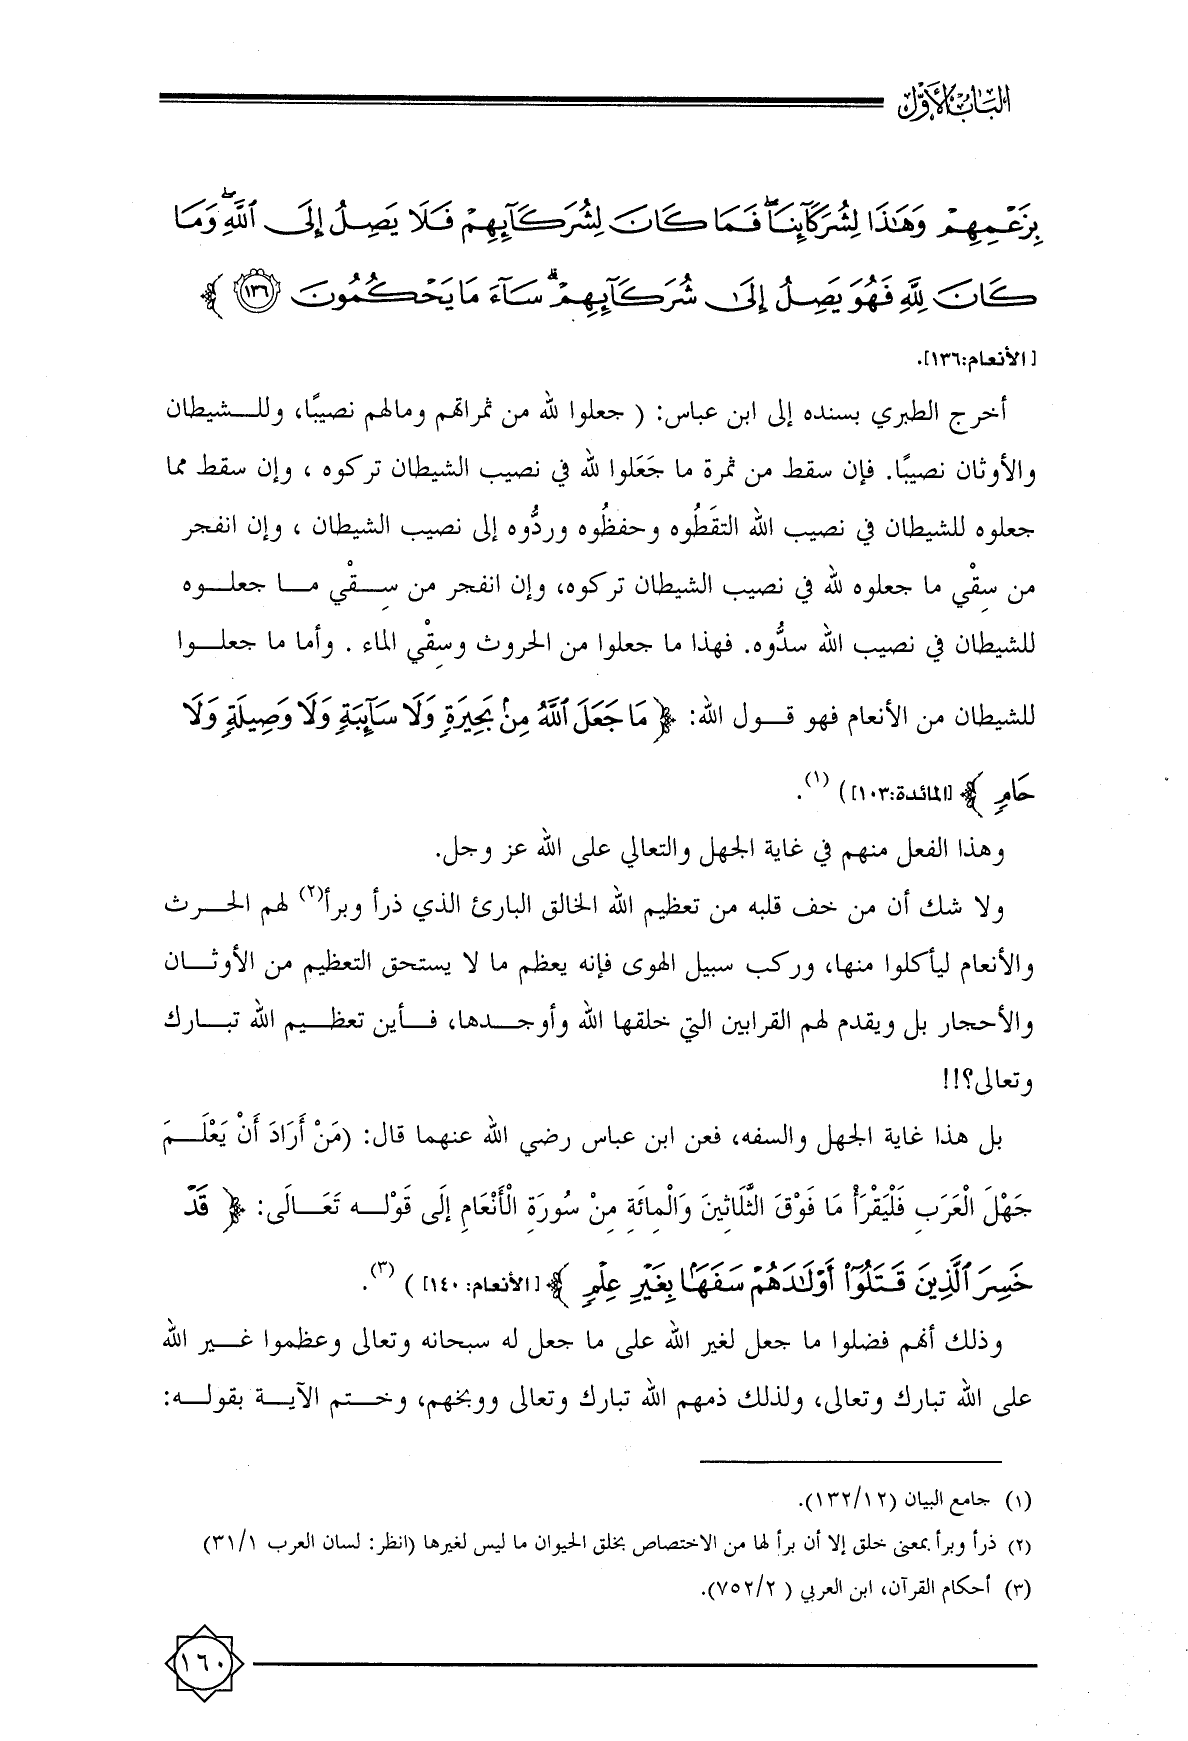 الباب الأول
بِزَعْمِهِمْ وَهَٰذَا لِشُرَكَآئِنَا ۖ فَمَا كَانَ لِشُرَكَآئِهِمْ فَلَا يَصِلُ إِلَى ٱللَّهِ ۖ وَمَا
كَانَ لِلَّهِ فَهُوَ يَصِلُ إِلَىٰ شُرَكَآئِهِمْ ۗ سَآءَ مَا يَحْكُمُونَ ﴿١٣٦﴾ ﴾
[الأنعام:١٣٦].
أخرج الطبري بسنده إلى ابن عباس: ( جعلوا لله من ثمراتهم ومالهم نصيبًا، وللـشيطان
والأوثان نصيبًا. فإن سقط من ثمرة ما جَعَلوا لله في نصيب الشيطان تركوه ، وإن سقط مما
جعلوه للشيطان في نصيب الله التقَطُوه وحفظُوه وردُّوه إلى نصيب الشيطان ، وإن انفجر
من سِقْي ما جعلوه لله في نصيب الشيطان تركوه، وإن انفجر من سِـقْي مـا جعلـوه
للشيطان في نصيب الله سدُّوه. فهذا ما جعلوا من الحروث وسِقْي الماء . وأما ما جعلـوا
للشيطان من الأنعام فهو قـول الله: ﴿ مَا جَعَلَ ٱللَّهُ مِنۢ بَحِيرَةٍ وَلَا سَآئِبَةٍ وَلَا وَصِيلَةٍ وَلَا
حَامٍ ﴾ [المائدة:١٠٣] ) (١).
وهذا الفعل منهم في غاية الجهل والتعالي على الله عز وجل.
ولا شك أن من خف قلبه من تعظيم الله الخالق البارئ الذي ذرأ وبرأ(٢) لهم الحـرث
والأنعام ليأكلوا منها، وركب سبيل الهوى فإنه يعظم ما لا يستحق التعظيم من الأوثـان
والأحجار بل ويقدم لهم القرابين التي خلقها الله وأوجـدها، فـأين تعظـيم الله تبـارك
وتعالى؟!!
بل هذا غاية الجهل والسفه، فعن ابن عباس رضي الله عنهما قال: (مَنْ أَرَادَ أَنْ يَعْلَـمَ
جَهْلَ الْعَرَبِ فَلْيَقْرَأْ مَا فَوْقَ الثَّلَاثِينَ وَالْمِائَةِ مِنْ سُورَةِ الْأَنْعَامِ إلَى قَوْلـه تَعَـالَى: ﴿ قَدْ
خَسِرَ ٱلَّذِينَ قَتَلُوٓا۟ أَوْلَٰدَهُمْ سَفَهًۢا بِغَيْرِ عِلْمٍ ﴾ [الأنعام: ١٤٠] ) (٣).
وذلك أنهم فضلوا ما جعل لغير الله على ما جعل له سبحانه وتعالى وعظموا غـير الله
على الله تبارك وتعالى، ولذلك ذمهم الله تبارك وتعالى ووبخهم، وخـتم الآيـة بقولـه:
(١) جامع البيان (١٣٢/١٢).
(٢) ذرأ وبرأ بمعنى خلق إلا أن برأ لها من الاختصاص بخلق الحيوان ما ليس لغيرها (انظر: لسان العرب ٣١/١)
(٣) أحكام القرآن، ابن العربي ( ٧٥٢/٢).
١٦٠